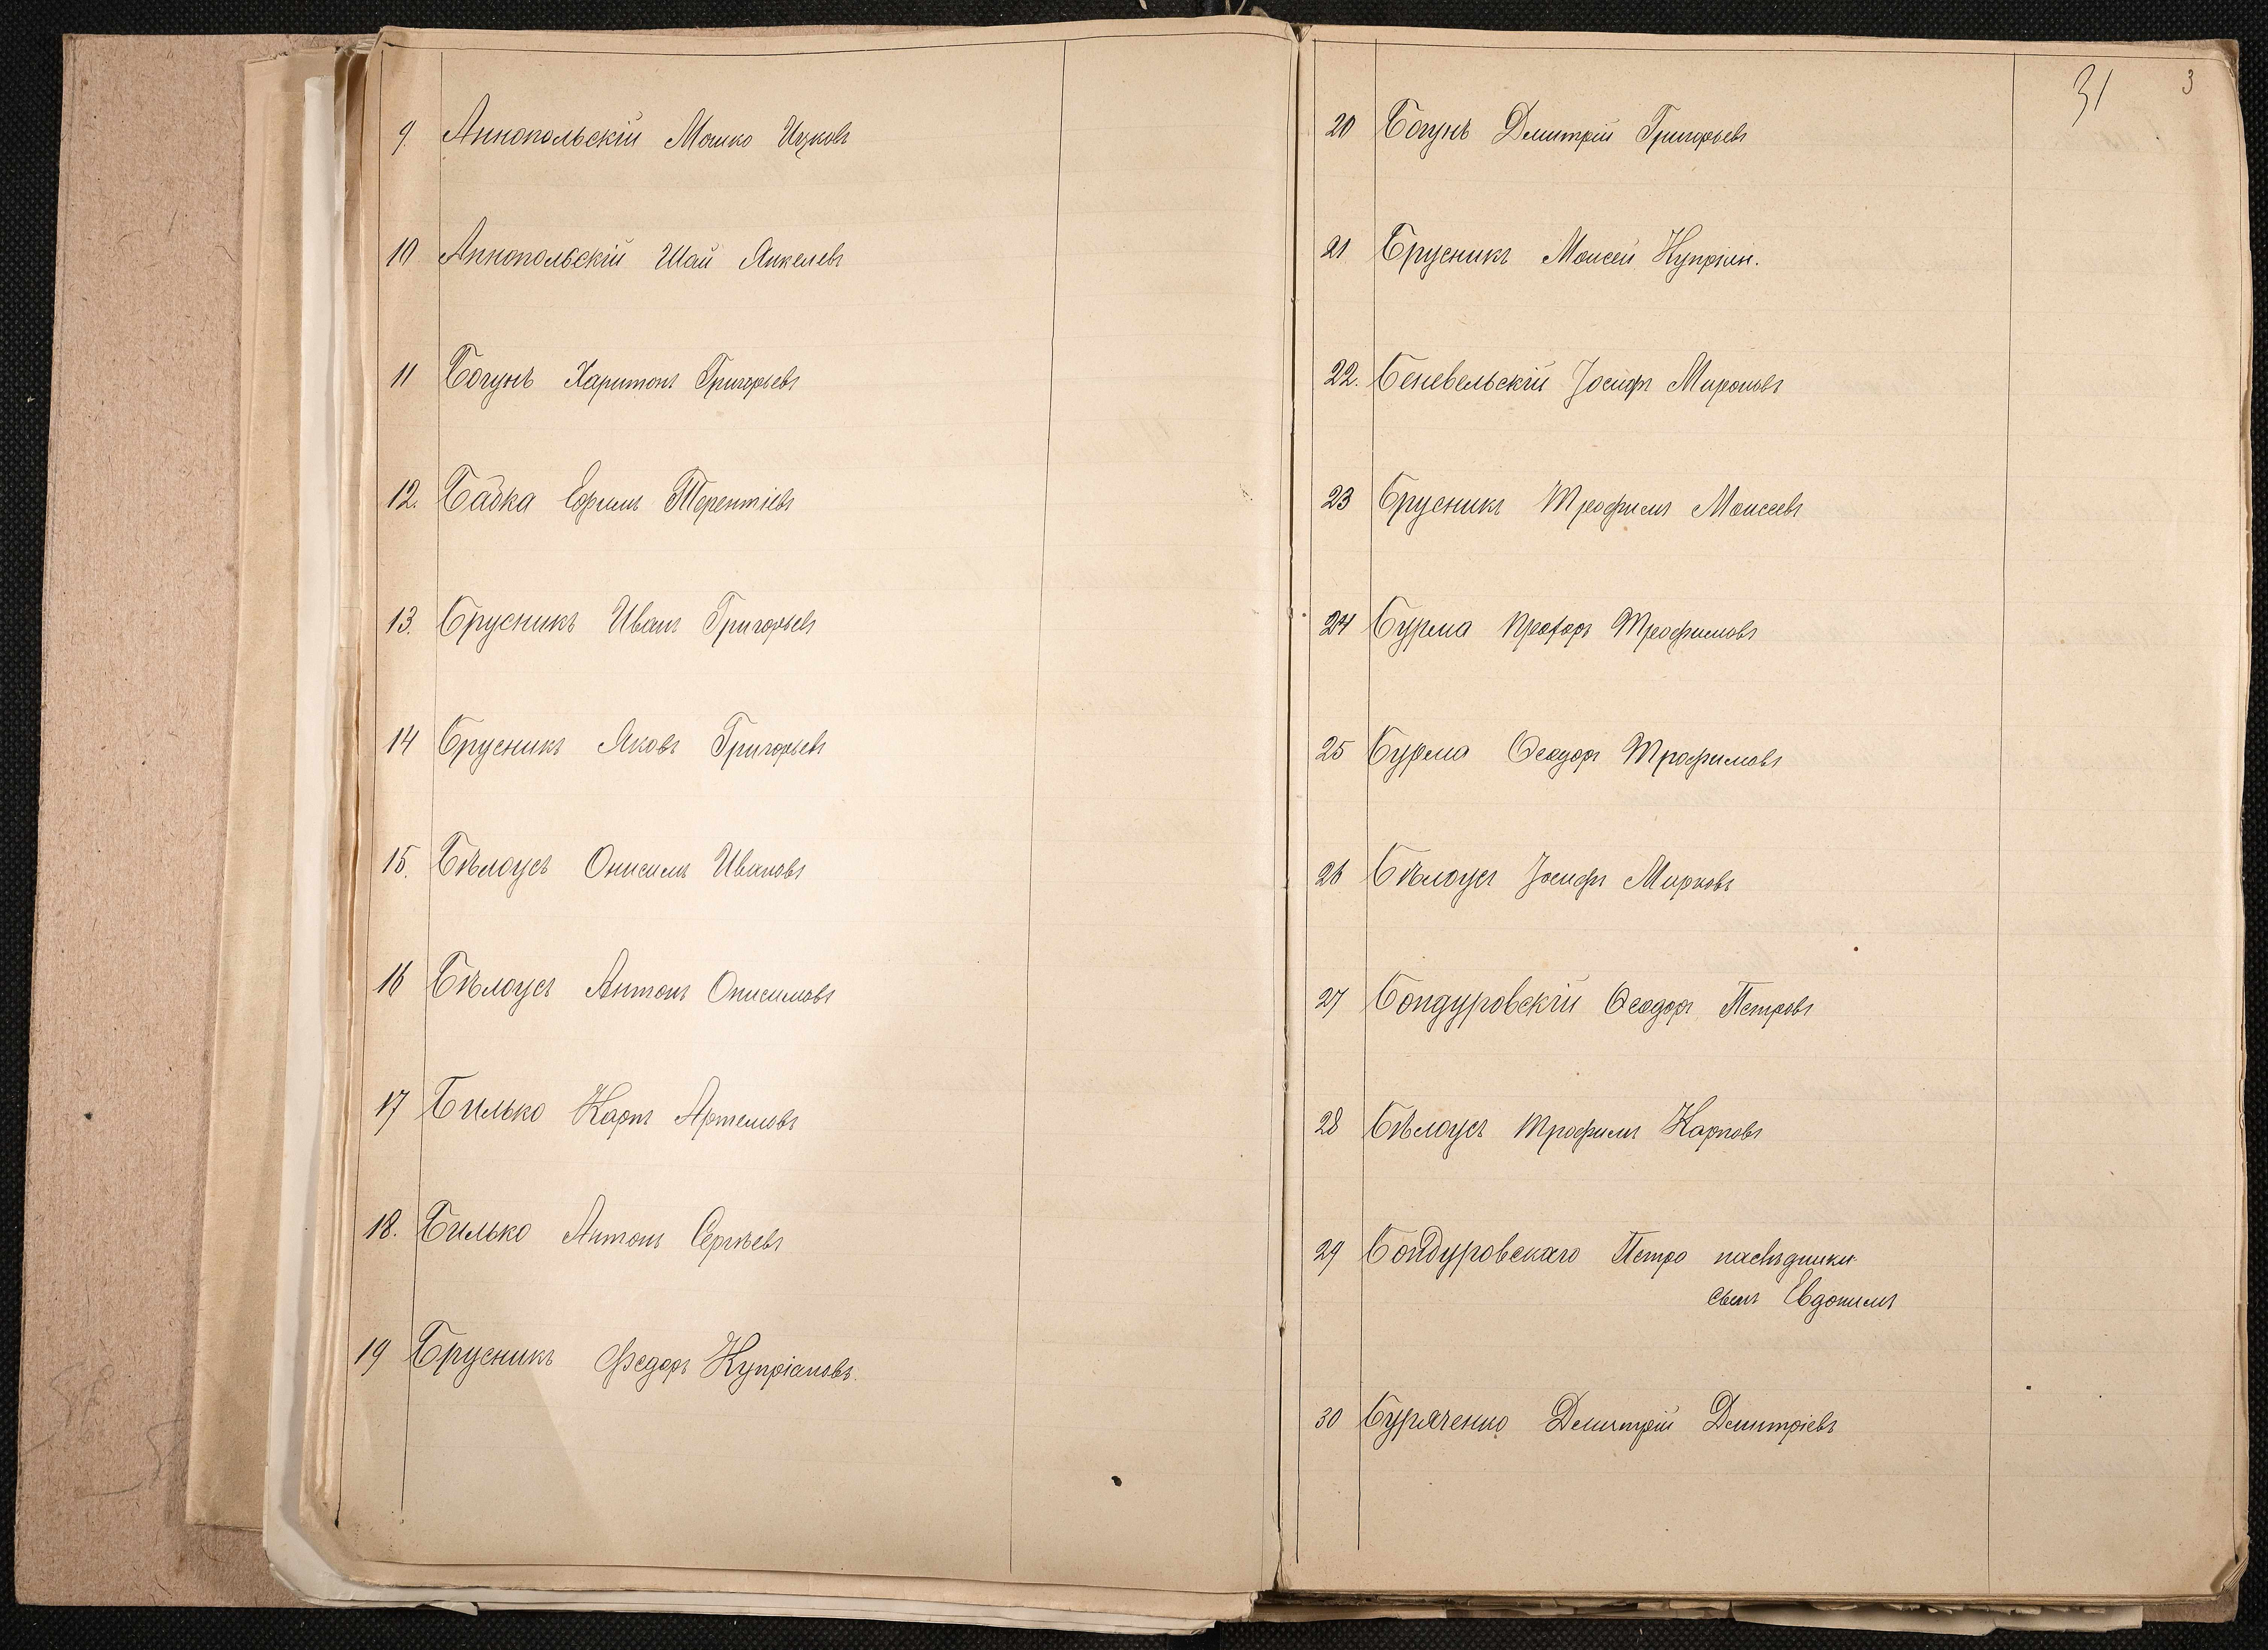 9. Аннопольскій Мошко Ицковъ
10 Аннопольскій Шай Янкелевъ
11 Богунъ Харитонъ Григорьевъ
12. Бабка Ефимъ Терентіевъ
13. Брусникъ Иванъ Григорьевъ
14 Брусникъ Яковъ Григорьевъ
15. Бѣлоусъ Онисимъ Ивановъ
16 Бѣлоусъ Антонъ Онисимовъ
17 Билько Карпъ Артемовъ
18. Билько Антонъ Сергѣевъ
19 Брусникъ Федоръ Купріановъ.
31 3
20 Богунъ Дмитрій Григорьевъ
21 Брусникъ Моисей Купріян.
22. Беневельскій Іосифъ Мироновъ
23 Брусникъ Трофимъ Моисеевъ
24 Бурма Прохоръ Трофимовъ
25 Бурма Ѳеодоръ Трофимовъ
26 Бѣлоусъ Іосифъ Марковъ
27 Бондуровскій Ѳеодоръ Петровъ
28 Бѣлоусъ Трофимъ Карповъ
29 Бондуровскаго Петра наслѣдники
сынъ Евдокимъ
30 Буряченко Дмитрій Дмитріевъ